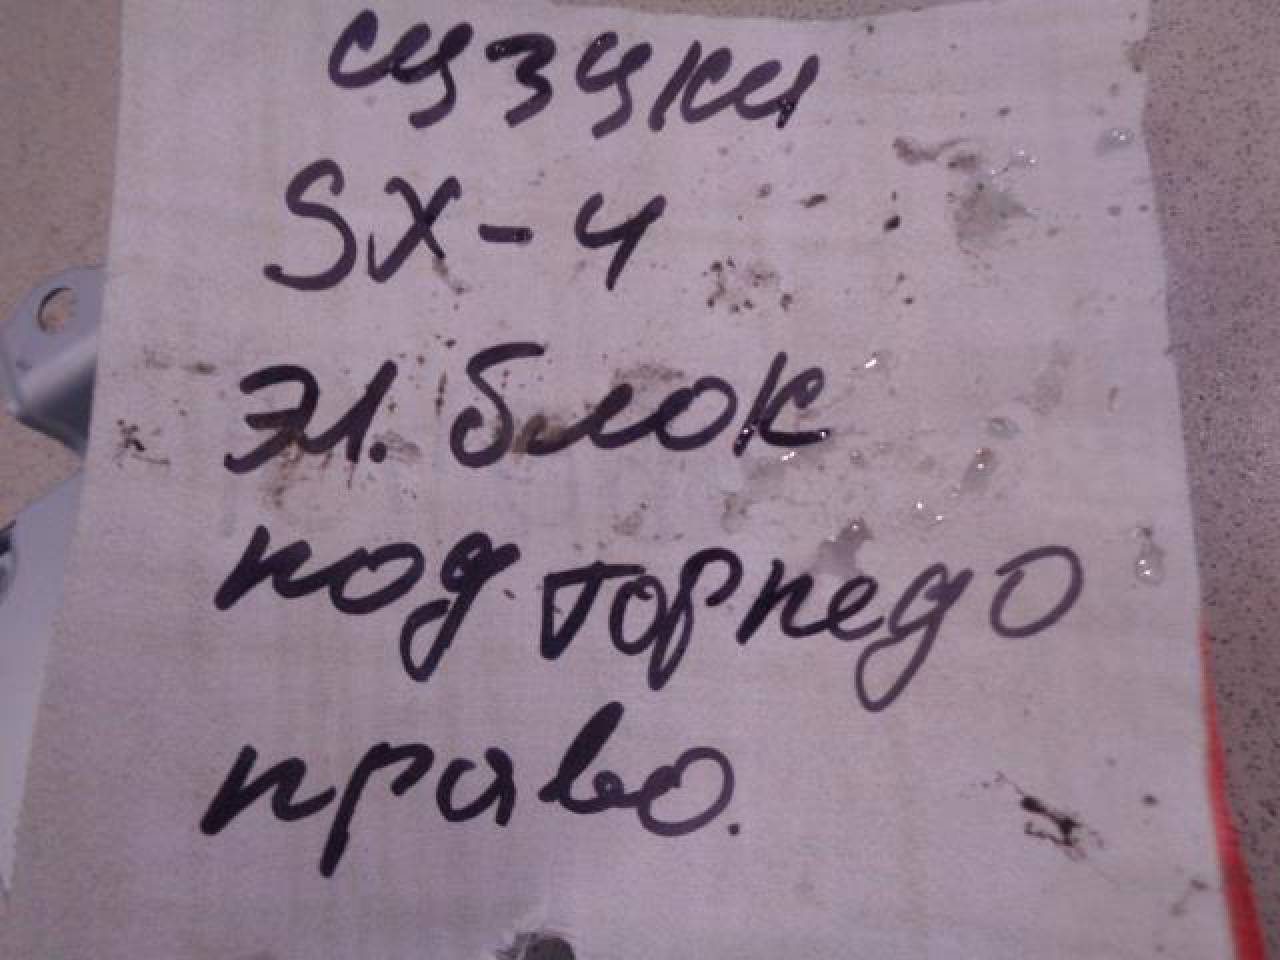 сузуки
SX-4
эл. блок
под торпедо
право.